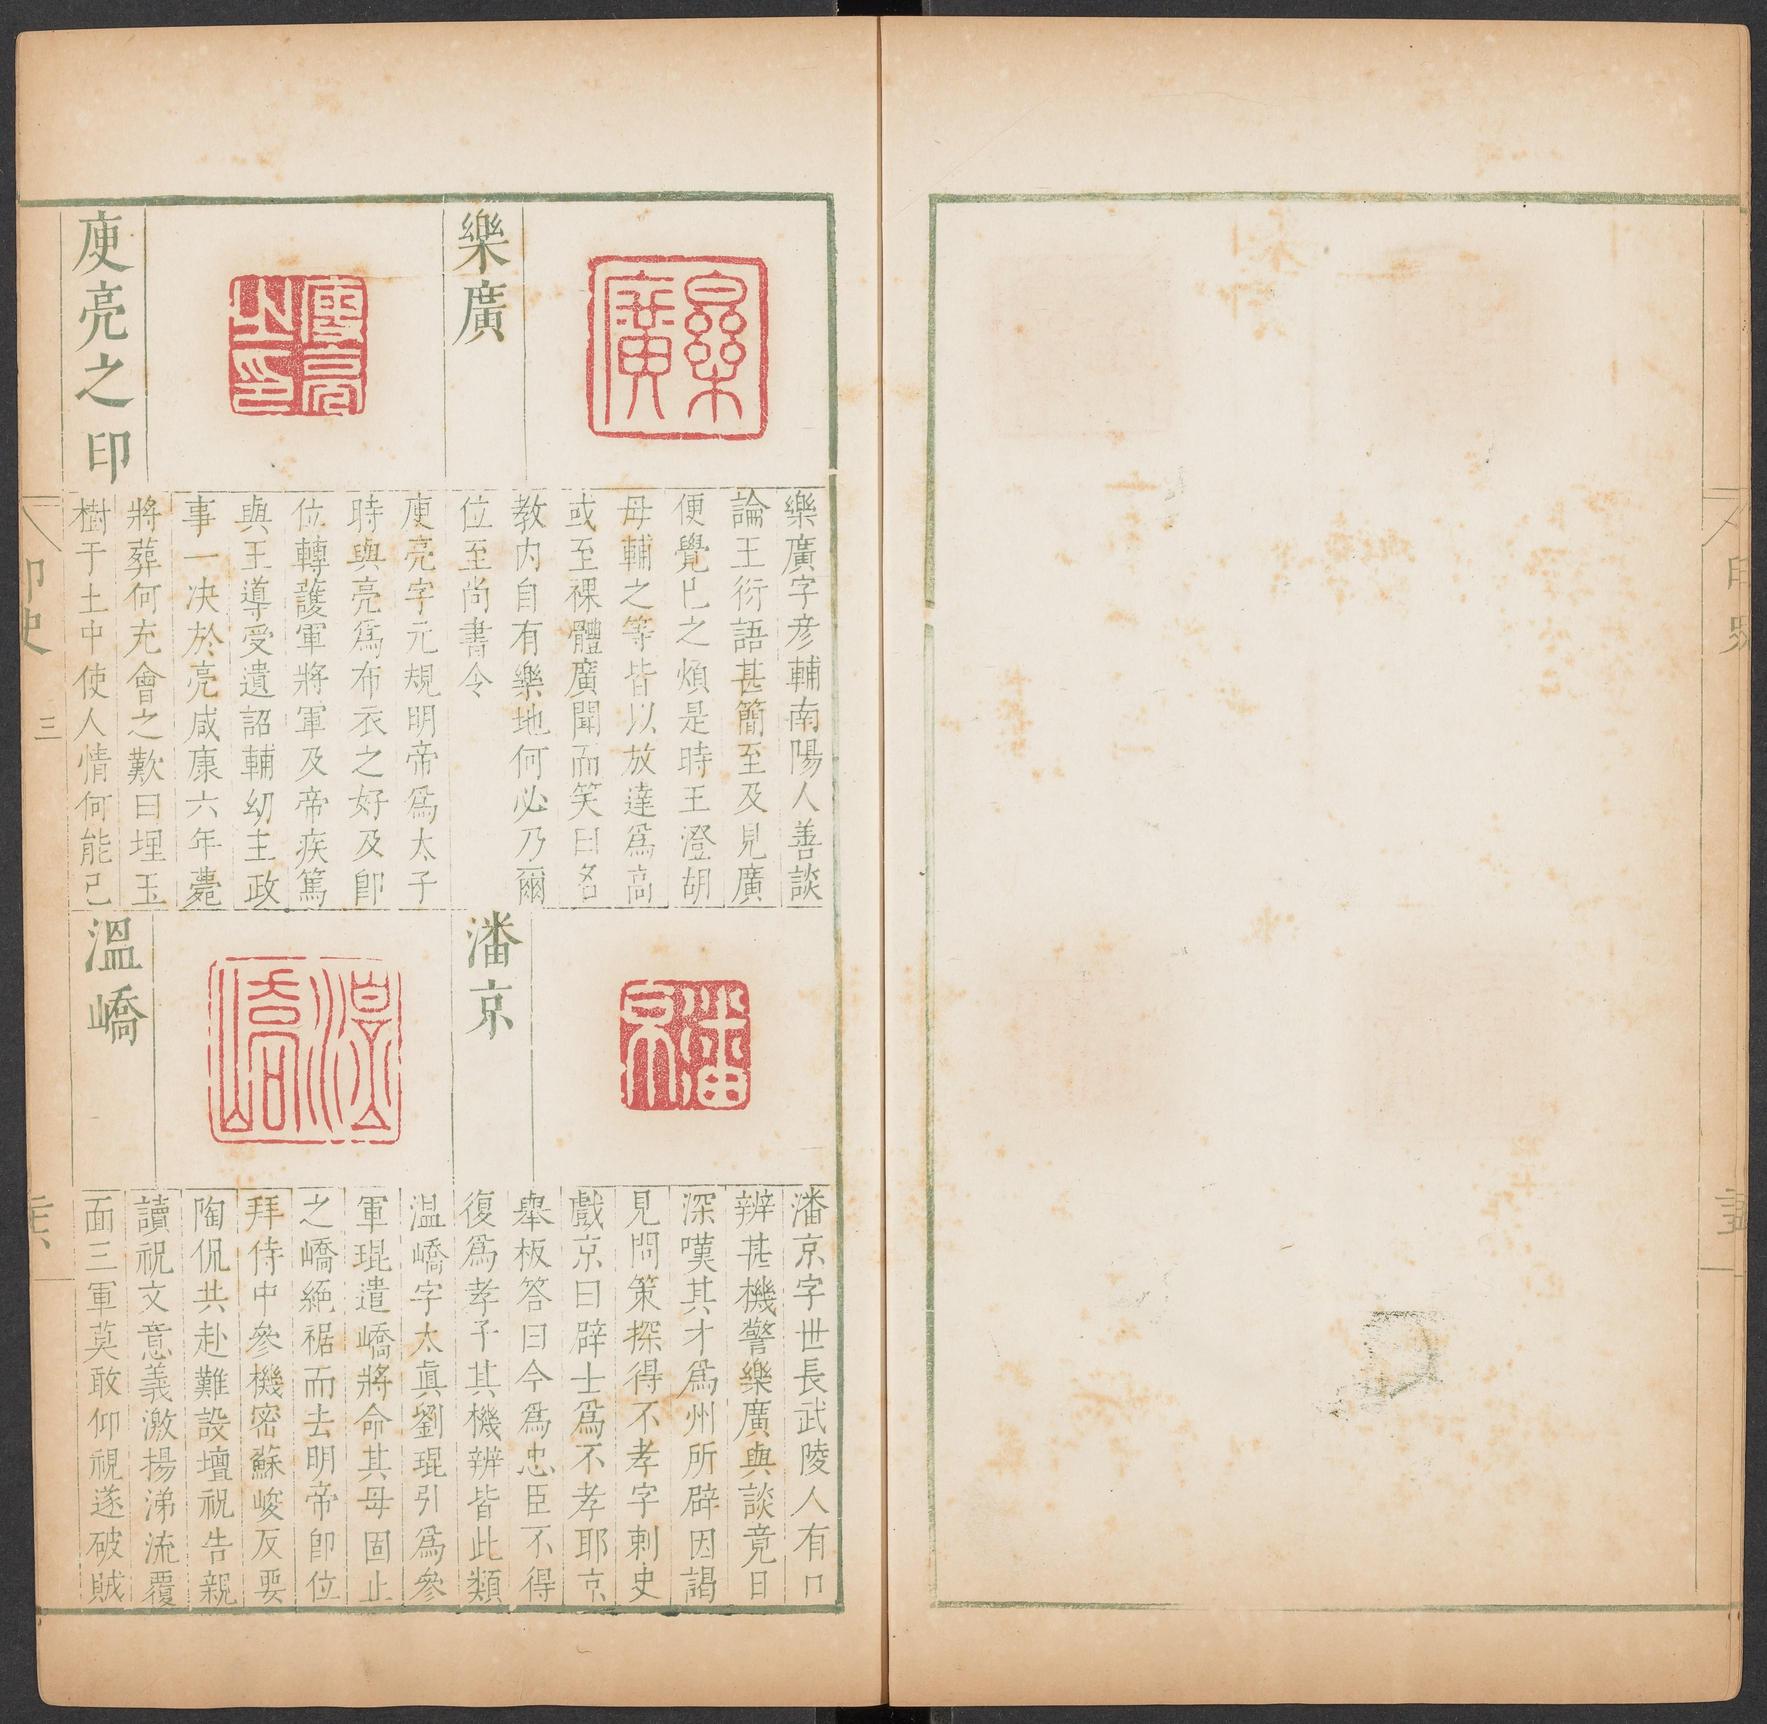 樂廣
樂廣字彦輔南陽人善談
論王衍語甚簡至及見廣
便覺已之煩是時王澄胡
毋輔之等皆以放達爲高
或至裸體廣聞而笑曰名
教内自有樂地何必乃爾
位至尚書令
庾亮之印
庾亮字元規明帝爲太子
時與亮爲布衣之好及卽
位轉護軍將軍及帝疾篤
與王導受遺詔輔幼主政
事一决於亮咸康六年薨
將葬何充會之歎曰埋玉
樹于土中使人情何能已
潘京
潘京字世長武陵人有口
辨甚機警樂廣與談竟日
深嘆其才爲州所辟因謁
見問策探得不孝字刺史
戲京曰辟士爲不孝耶京
舉板答曰今爲忠臣不得
復爲孝子其機辨皆此類
溫嶠
温嶠字太眞劉琨引爲參
軍琨遣嶠將命其母固止
之嶠絕裾而去明帝卽位
拜侍中參機密蘇峻反要
陶侃共赴難設壇祝告親
讀祝文意義激揚涕流覆
面三軍莫敢仰視遂破賊
印史
三